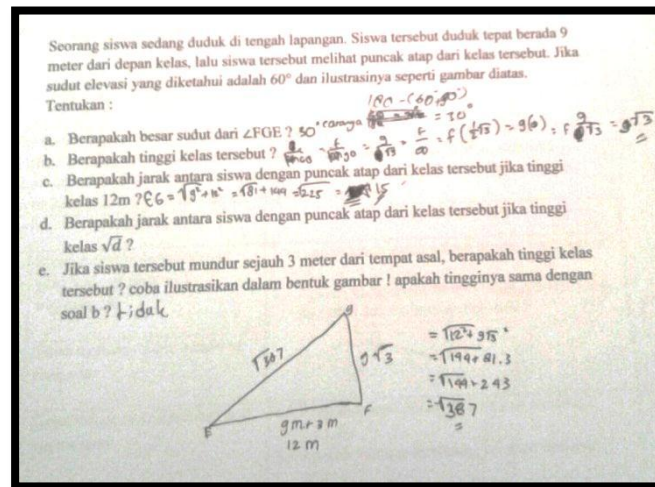 Seorang siswa sedang duduk di tengah lapangan. Siswa tersebut duduk tepat berada 9
meter dari depan kelas, lalu siswa tersebut melihat puncak atap dari kelas tersebut. Jika
sudut elevasi yang diketahui adalah 60° dan ilustrasinya seperti gambar diatas.
Tentukan :
180 - (60+90)
a. Berapakah besar sudut dari ∠FGE ? 30° caranya = 30°
b. Berapakah tinggi kelas tersebut ?
c. Berapakah jarak antara siswa dengan puncak atap dari kelas tersebut jika tinggi
kelas 12m ? EG = = √81 + 144 = √225 = 15
d. Berapakah jarak antara siswa dengan puncak atap dari kelas tersebut jika tinggi
kelas √d ?
e. Jika siswa tersebut mundur sejauh 3 meter dari tempat asal, berapakah tinggi kelas
tersebut ? coba ilustrasikan dalam bentuk gambar ! apakah tingginya sama dengan
soal b ? tidak
g
√387
9√3
E
F
9m+3m
12 m
= √144 + 81.3
= √144 + 243
= √387